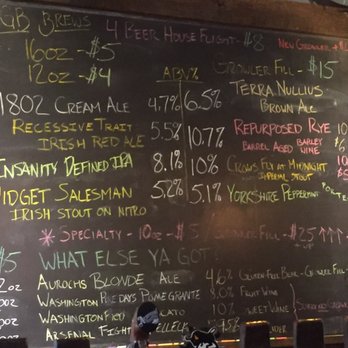 GB BREWS
4 BEER HOUSE FLIGHT - $8
NEW GROWLER +
16oz - $5
12oz - $4
ABV%
GROWLER FILL - $15
1802 CREAM ALE 4.7%
6.5% TERRA NULLIUS
BROWN ALE
RECESSIVE TRAIT 5.5%
IRISH RED ALE
10.7% REPURPOSED RYE
BARREL AGED BARLEY WINE
INSANITY DEFINED IPA 8.1%
10% CROWS FLY AT MIDNIGHT
IMPERIAL STOUT
MIDGET SALESMAN 5.2%
IRISH STOUT ON NITRO
5.1% YORKSHIRE PEPPERMINT PORTER
* SPECIALTY - 10oz - $5 / GROWLER FILL - $25 ↑↑↑
+ UP
$5 WHAT ELSE YA GOT?
AUROCHS BLONDE ALE 4.6%
WASHINGTON POMEGRANATE 8.0% FRUIT WINE
WASHINGTON 10% SWEET WINE
ARSENAL